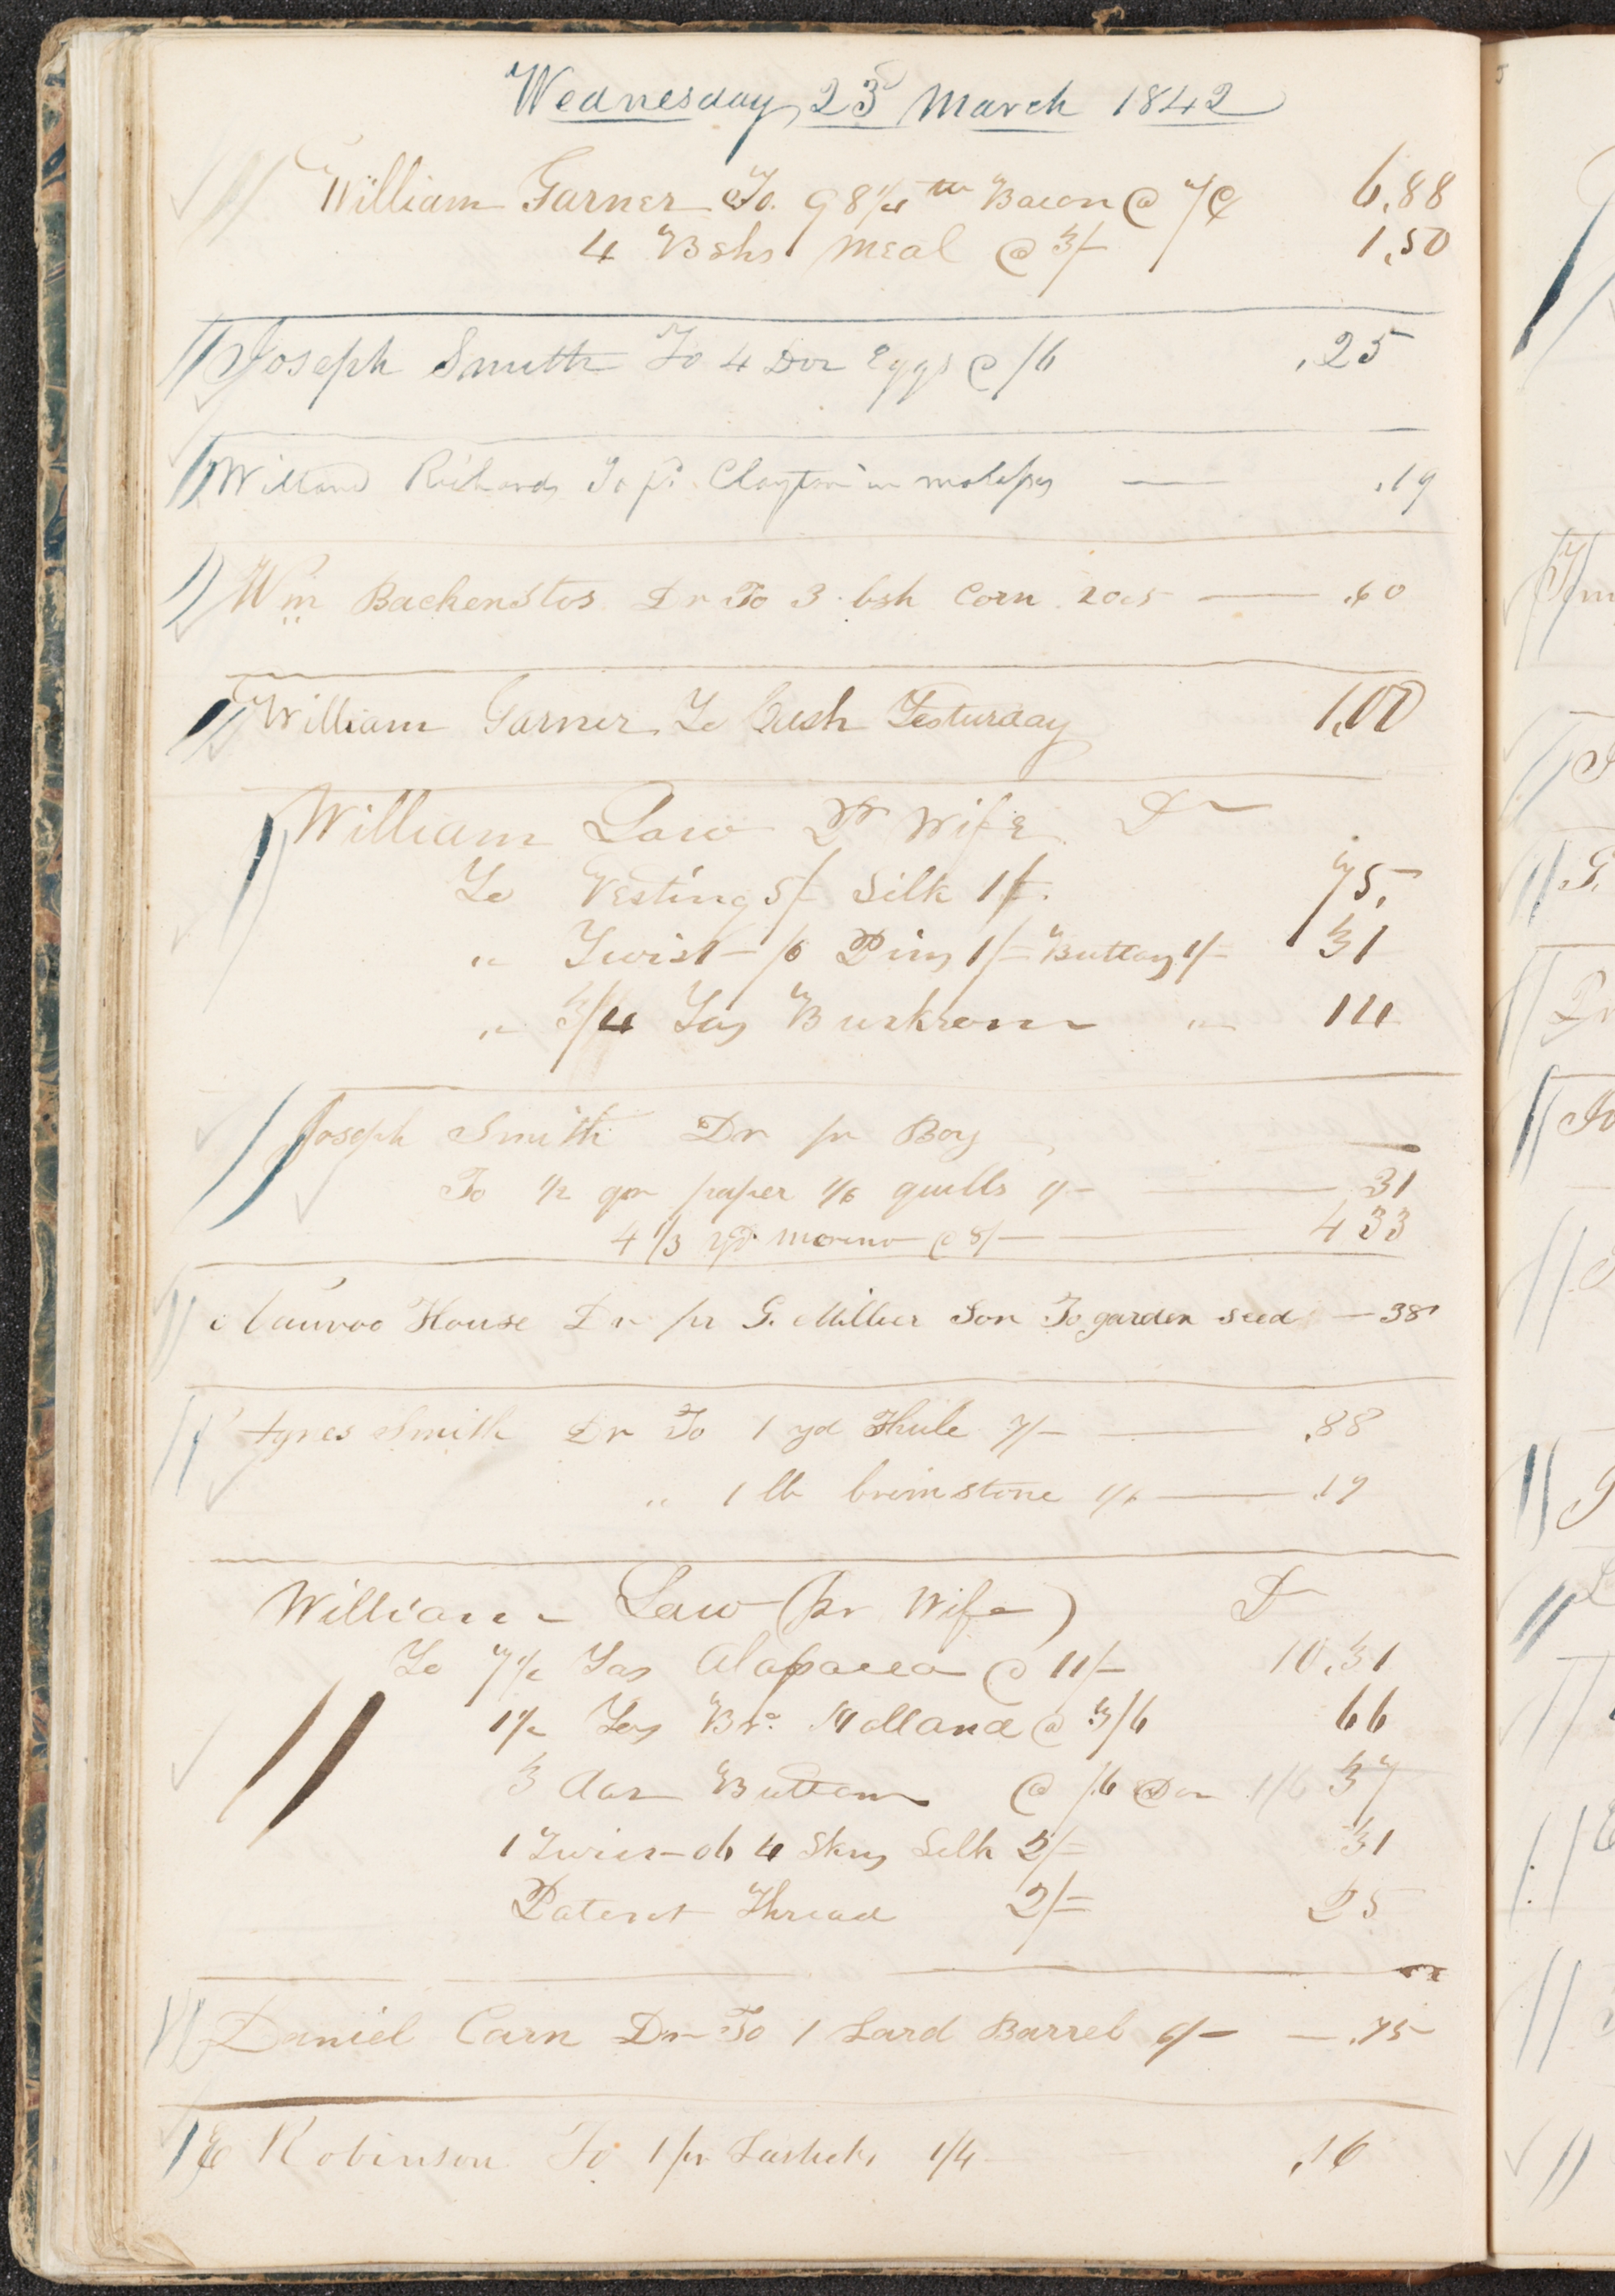 Wednesday, 23d March 1842
William Garner To. 98 1/4 lbs Bacon @ 7¢ 6.88
4 Bshs Meal @ 3/- 1.50
Joseph Smith To 4 Doz Eggs @ /6 .25
Willard Richards To pr. Clayton in molasses — .19
Wm Backenstos Dr To 3 bsh Corn 20cs — .60
William Garner To Cash Yesturday 1.00
William Law Pr Wife Dr
To Vesting 5/- Silk 1/- 75
" Twist - /6 Pins 1/- Buttons 1/- 31
" 3/4 Yds Burkrom " 14
Joseph Smith Dr pr Boy
To 1/2 qr paper 1/6 quills 1/- — 31
4 1/3 yd merino @ 8/- — 4 33
Nauvoo House Dr pr G. Miller Son To garden seed — 38
Agnes Smith Dr To 1 yd Thule 7/- — .88
" 1 lb brimstone 1/6 — .19
William Law (pr Wife) Dr
To 7 1/2 Yds Alapacca @ 11/- 10.31
1 1/2 Yds Br. Holland @ 3/6 66
3 doz Buttons @ /6 Doz 1/6 37
1 Twist - 06 4 Skns Silk 2/- 31
Patent Thread 2/- 25
Daniel Carn Dr To 1 Lard Barrel 6/- — .75
E Robinson To 1 pr 1/4 .16